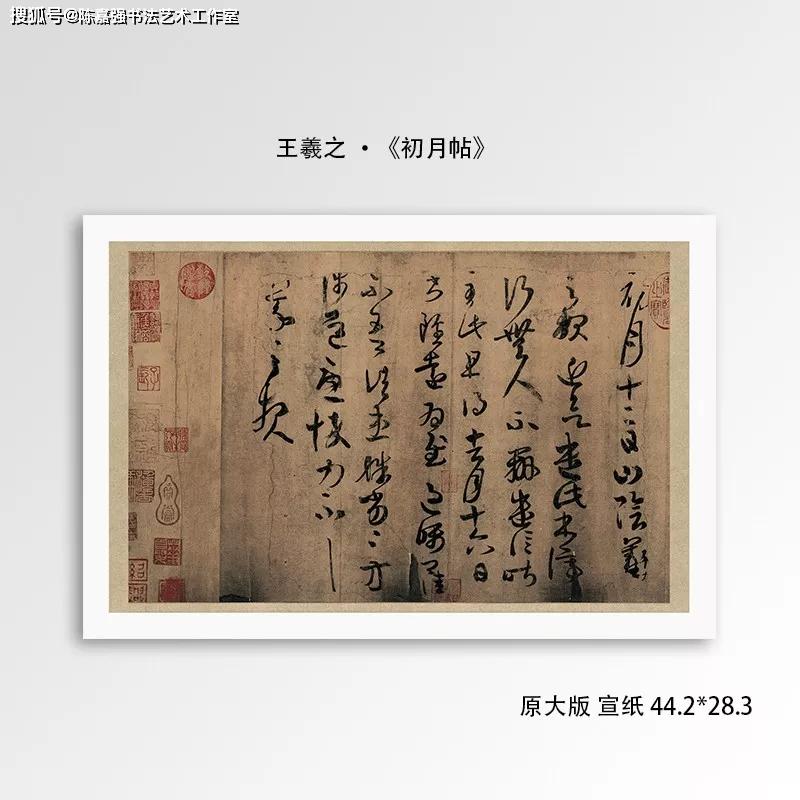 搜狐号@陈嘉强书法艺术工作室
王羲之·《初月帖》
初月十二日山陰羲
之報近欲遣此書停
行無人不辦遣信昨
至此且得去月十六日
書雖遠為慰過囑
不吾諸患殊劣殊劣方
涉道憂悴力不
羲之報
原大版 宣纸 44.2*28.3